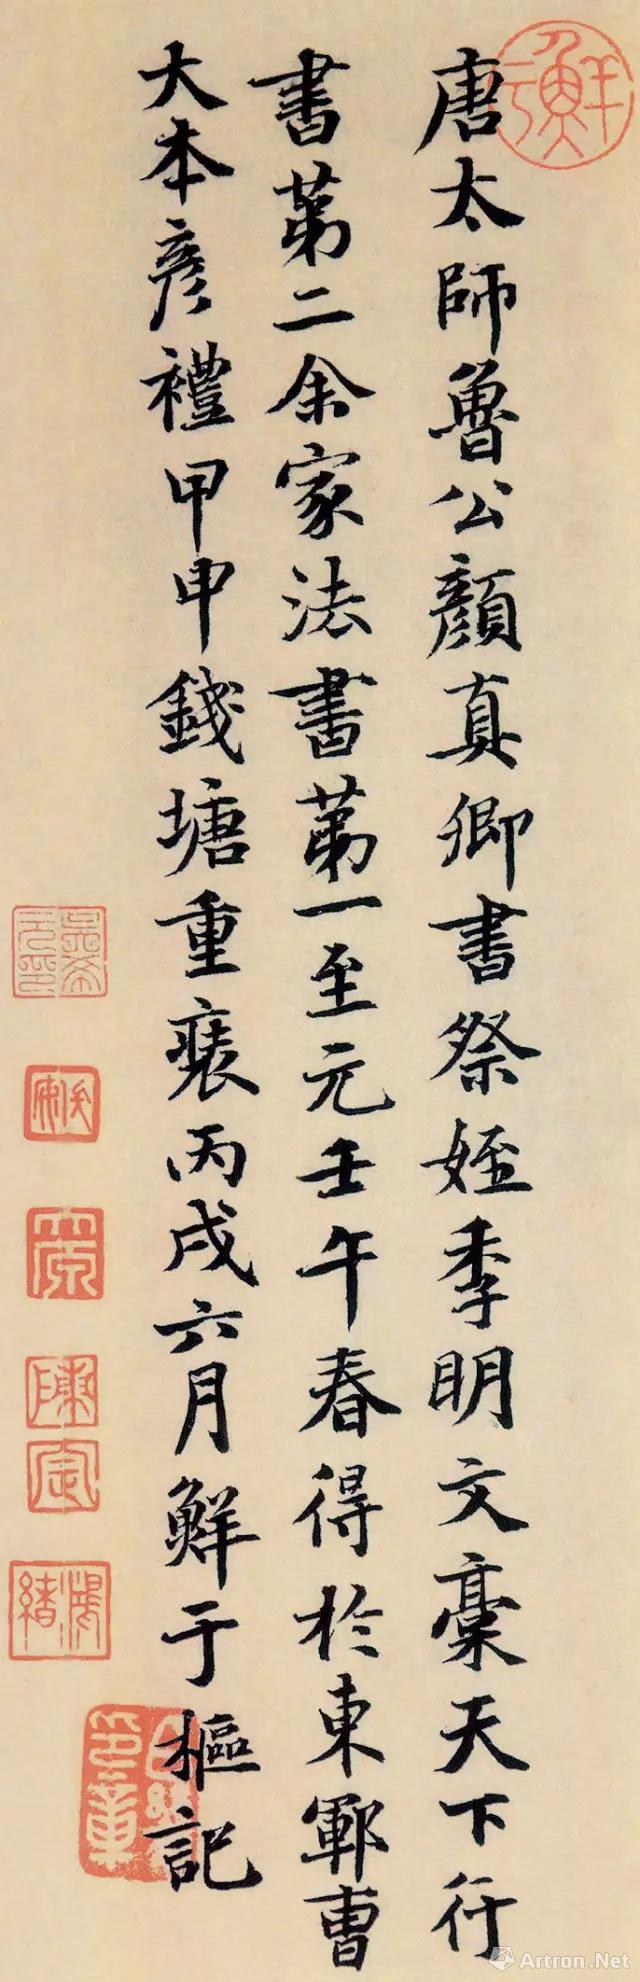 唐太師魯公顏真卿書祭姪季明文稾天下行
書第二余家法書第一至元壬午春得於東鄆曹
大本彥禮甲申錢塘重裝丙戌六月鮮于樞記
鮮于
Artron.Net